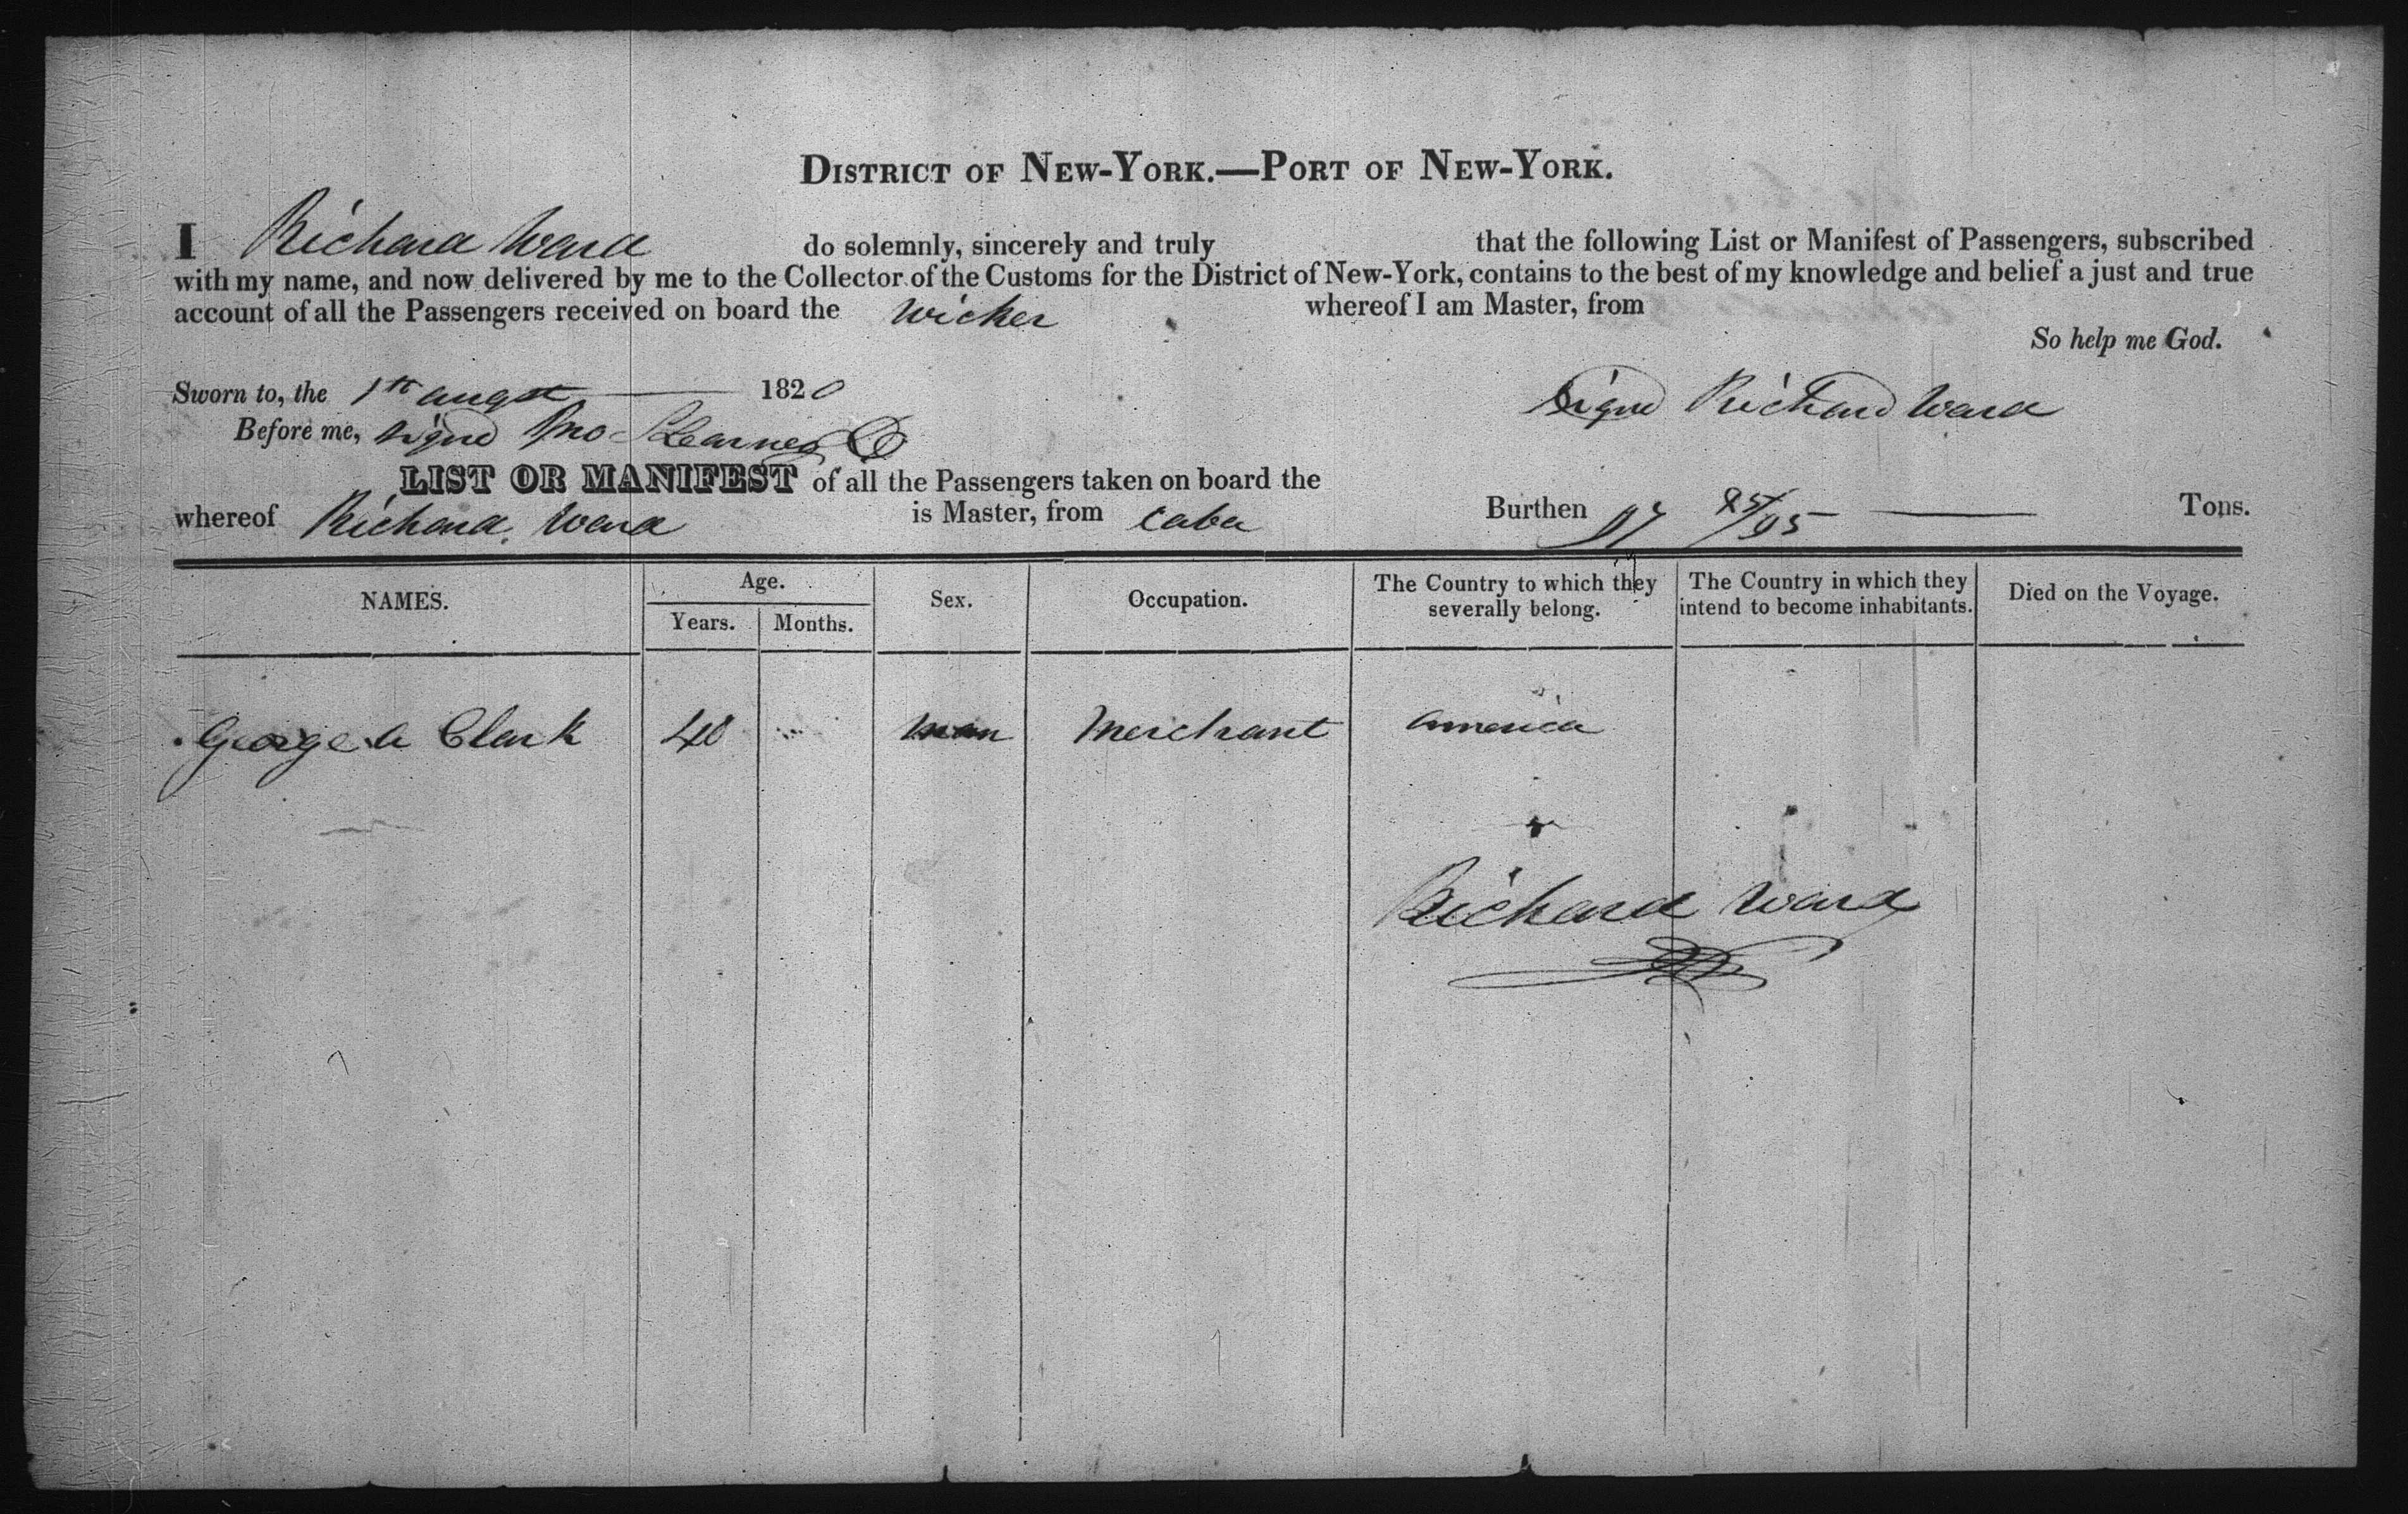 DISTRICT OF NEW-YORK.—PORT OF NEW-YORK.
I Richard Ward do solemnly, sincerely and truly that the following List or Manifest of Passengers, subscribed
with my name, and now delivered by me to the Collector of the Customs for the District of New-York, contains to the best of my knowledge and belief a just and true
account of all the Passengers received on board the Wicker whereof I am Master, from
So help me God.
Sworn to, the 1th augst 1820
Signd Richard Ward
Before me, signd Jno
LIST OR MANIFEST of all the Passengers taken on board the
whereof Richard Ward is Master, from Cuba Burthen 25/95 Tons.
NAMES. Age. Years. Months. Sex. Occupation. The Country to which they severally belong. The Country in which they intend to become inhabitants. Died on the Voyage.
George A Clark 40 ... man Merchant America
Richard Ward